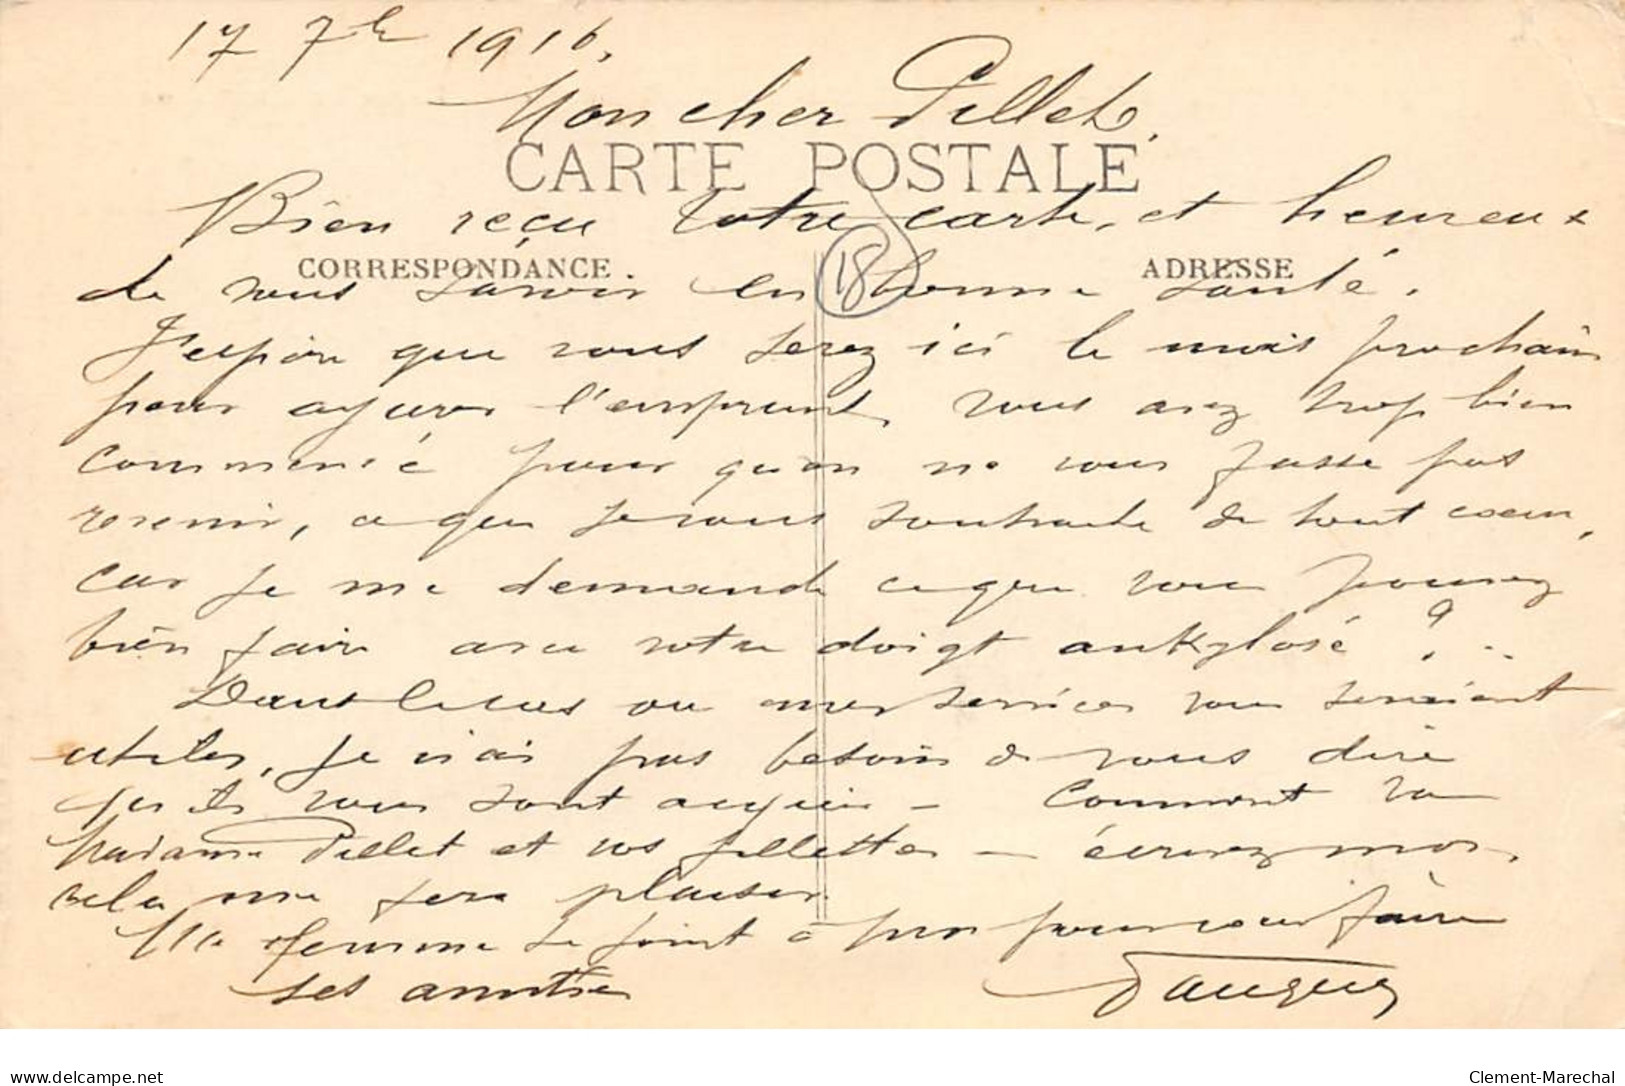 17 7bre 1916.
Mon cher Pillet.
CARTE POSTALE
Bien reçu votre carte, et heureux
CORRESPONDANCE
ADRESSE
de vous savoir en bonne santé.
18
J'espère que vous serez ici le mois prochain
pour l'emprunt, vous avez trop bien
commencé pour qu'on ne vous fasse pas
revenir, ce que je vous souhaite de tout cœur,
car je me demande ce que vous pouvez
bien faire avec votre doigt ankylosé ? ..
Dans le cas où mes services vous seraient
utiles, je n'ai pas besoin de vous dire
qu'ils vous sont acquis - Comment va
Madame Pillet et vos fillettes - écrivez moi,
cela me fera plaisir.
Ma femme se joint à moi pour vous faire
ses amitiés
Clement-Marechal
www.delcampe.net